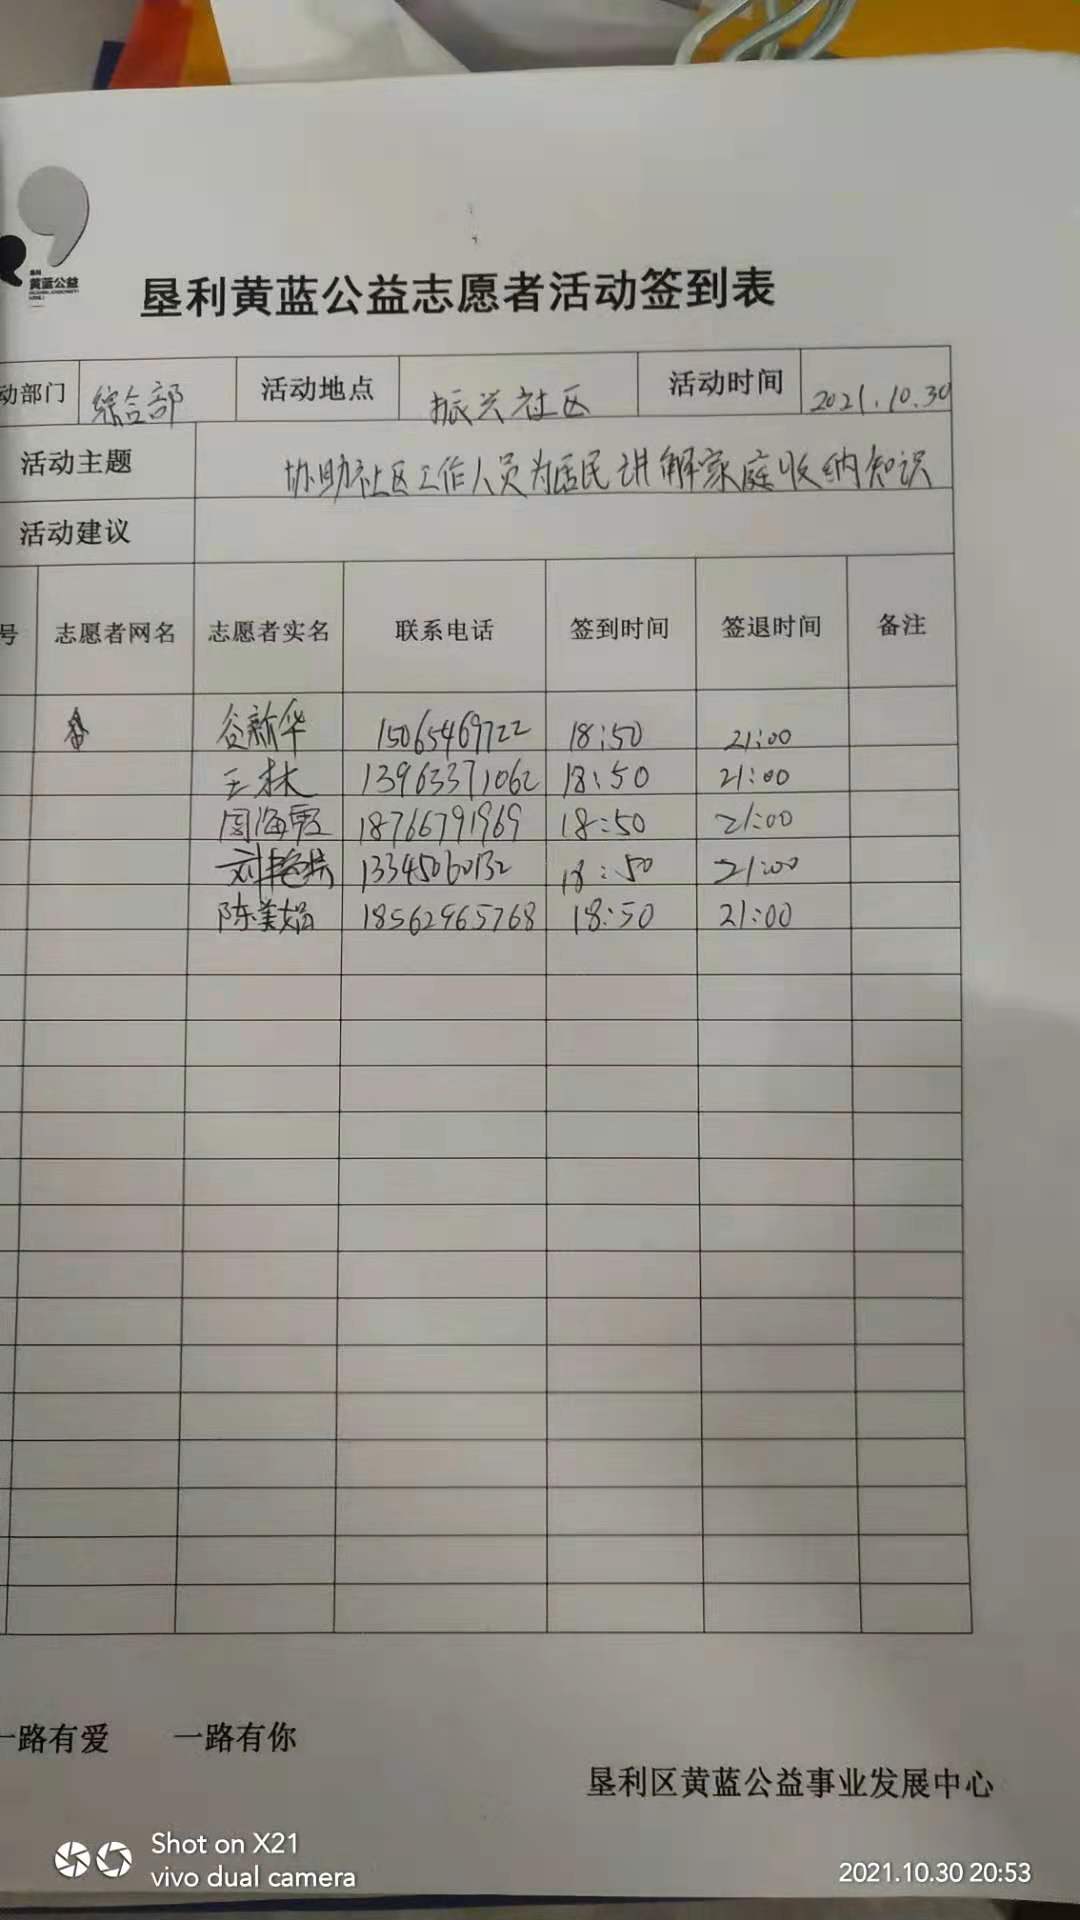 黄蓝公益
垦利黄蓝公益志愿者活动签到表
动部门 综合部 活动地点 振兴社区 活动时间 2021.10.30
活动主题 协助社区工作人员为居民讲解家庭收纳知识
活动建议
号 志愿者网名 志愿者实名 联系电话 签到时间 签退时间 备注
谷新华 15065469722 18:50 21:00
王林 13963371062 18:50 21:00
周海霞 18766791969 18:50 21:00
刘艳芬 13345060132 18:50 21:00
陈美娟 18562965768 18:50 21:00
一路有爱 一路有你
垦利区黄蓝公益事业发展中心
Shot on X21
vivo dual camera
2021.10.30 20:53